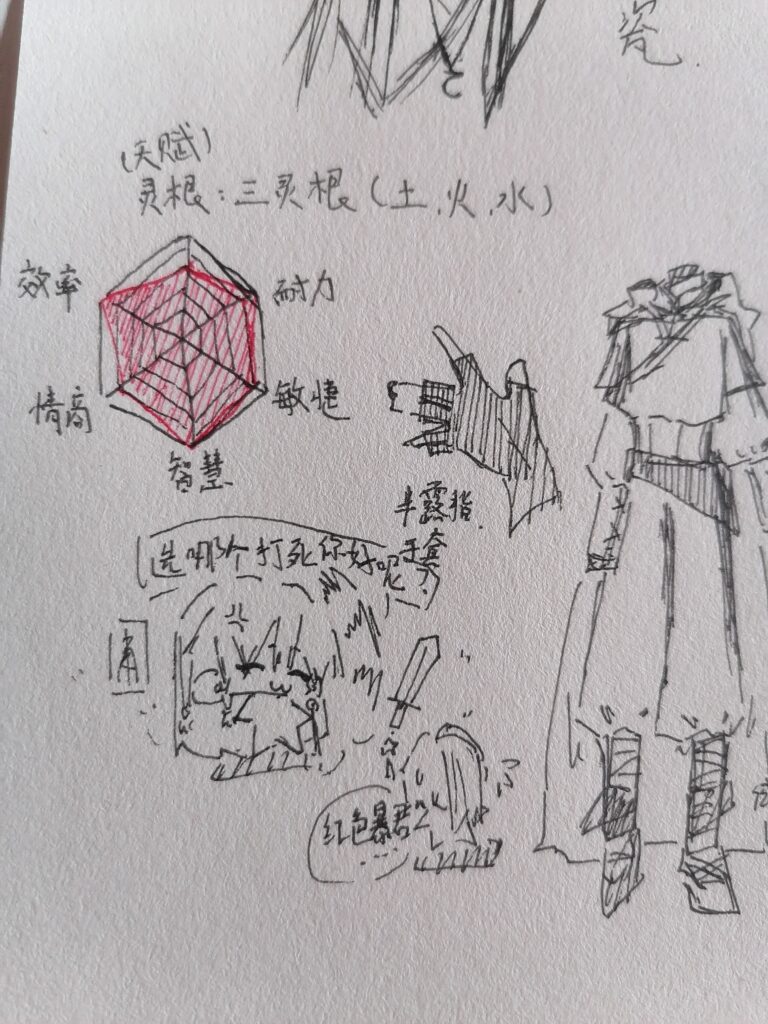 瓷
(天赋)
灵根：三灵根(土,火,水)
效率
耐力
情商
敏捷
智慧
半露指
手套
选哪个打死你好呢?
红色暴君